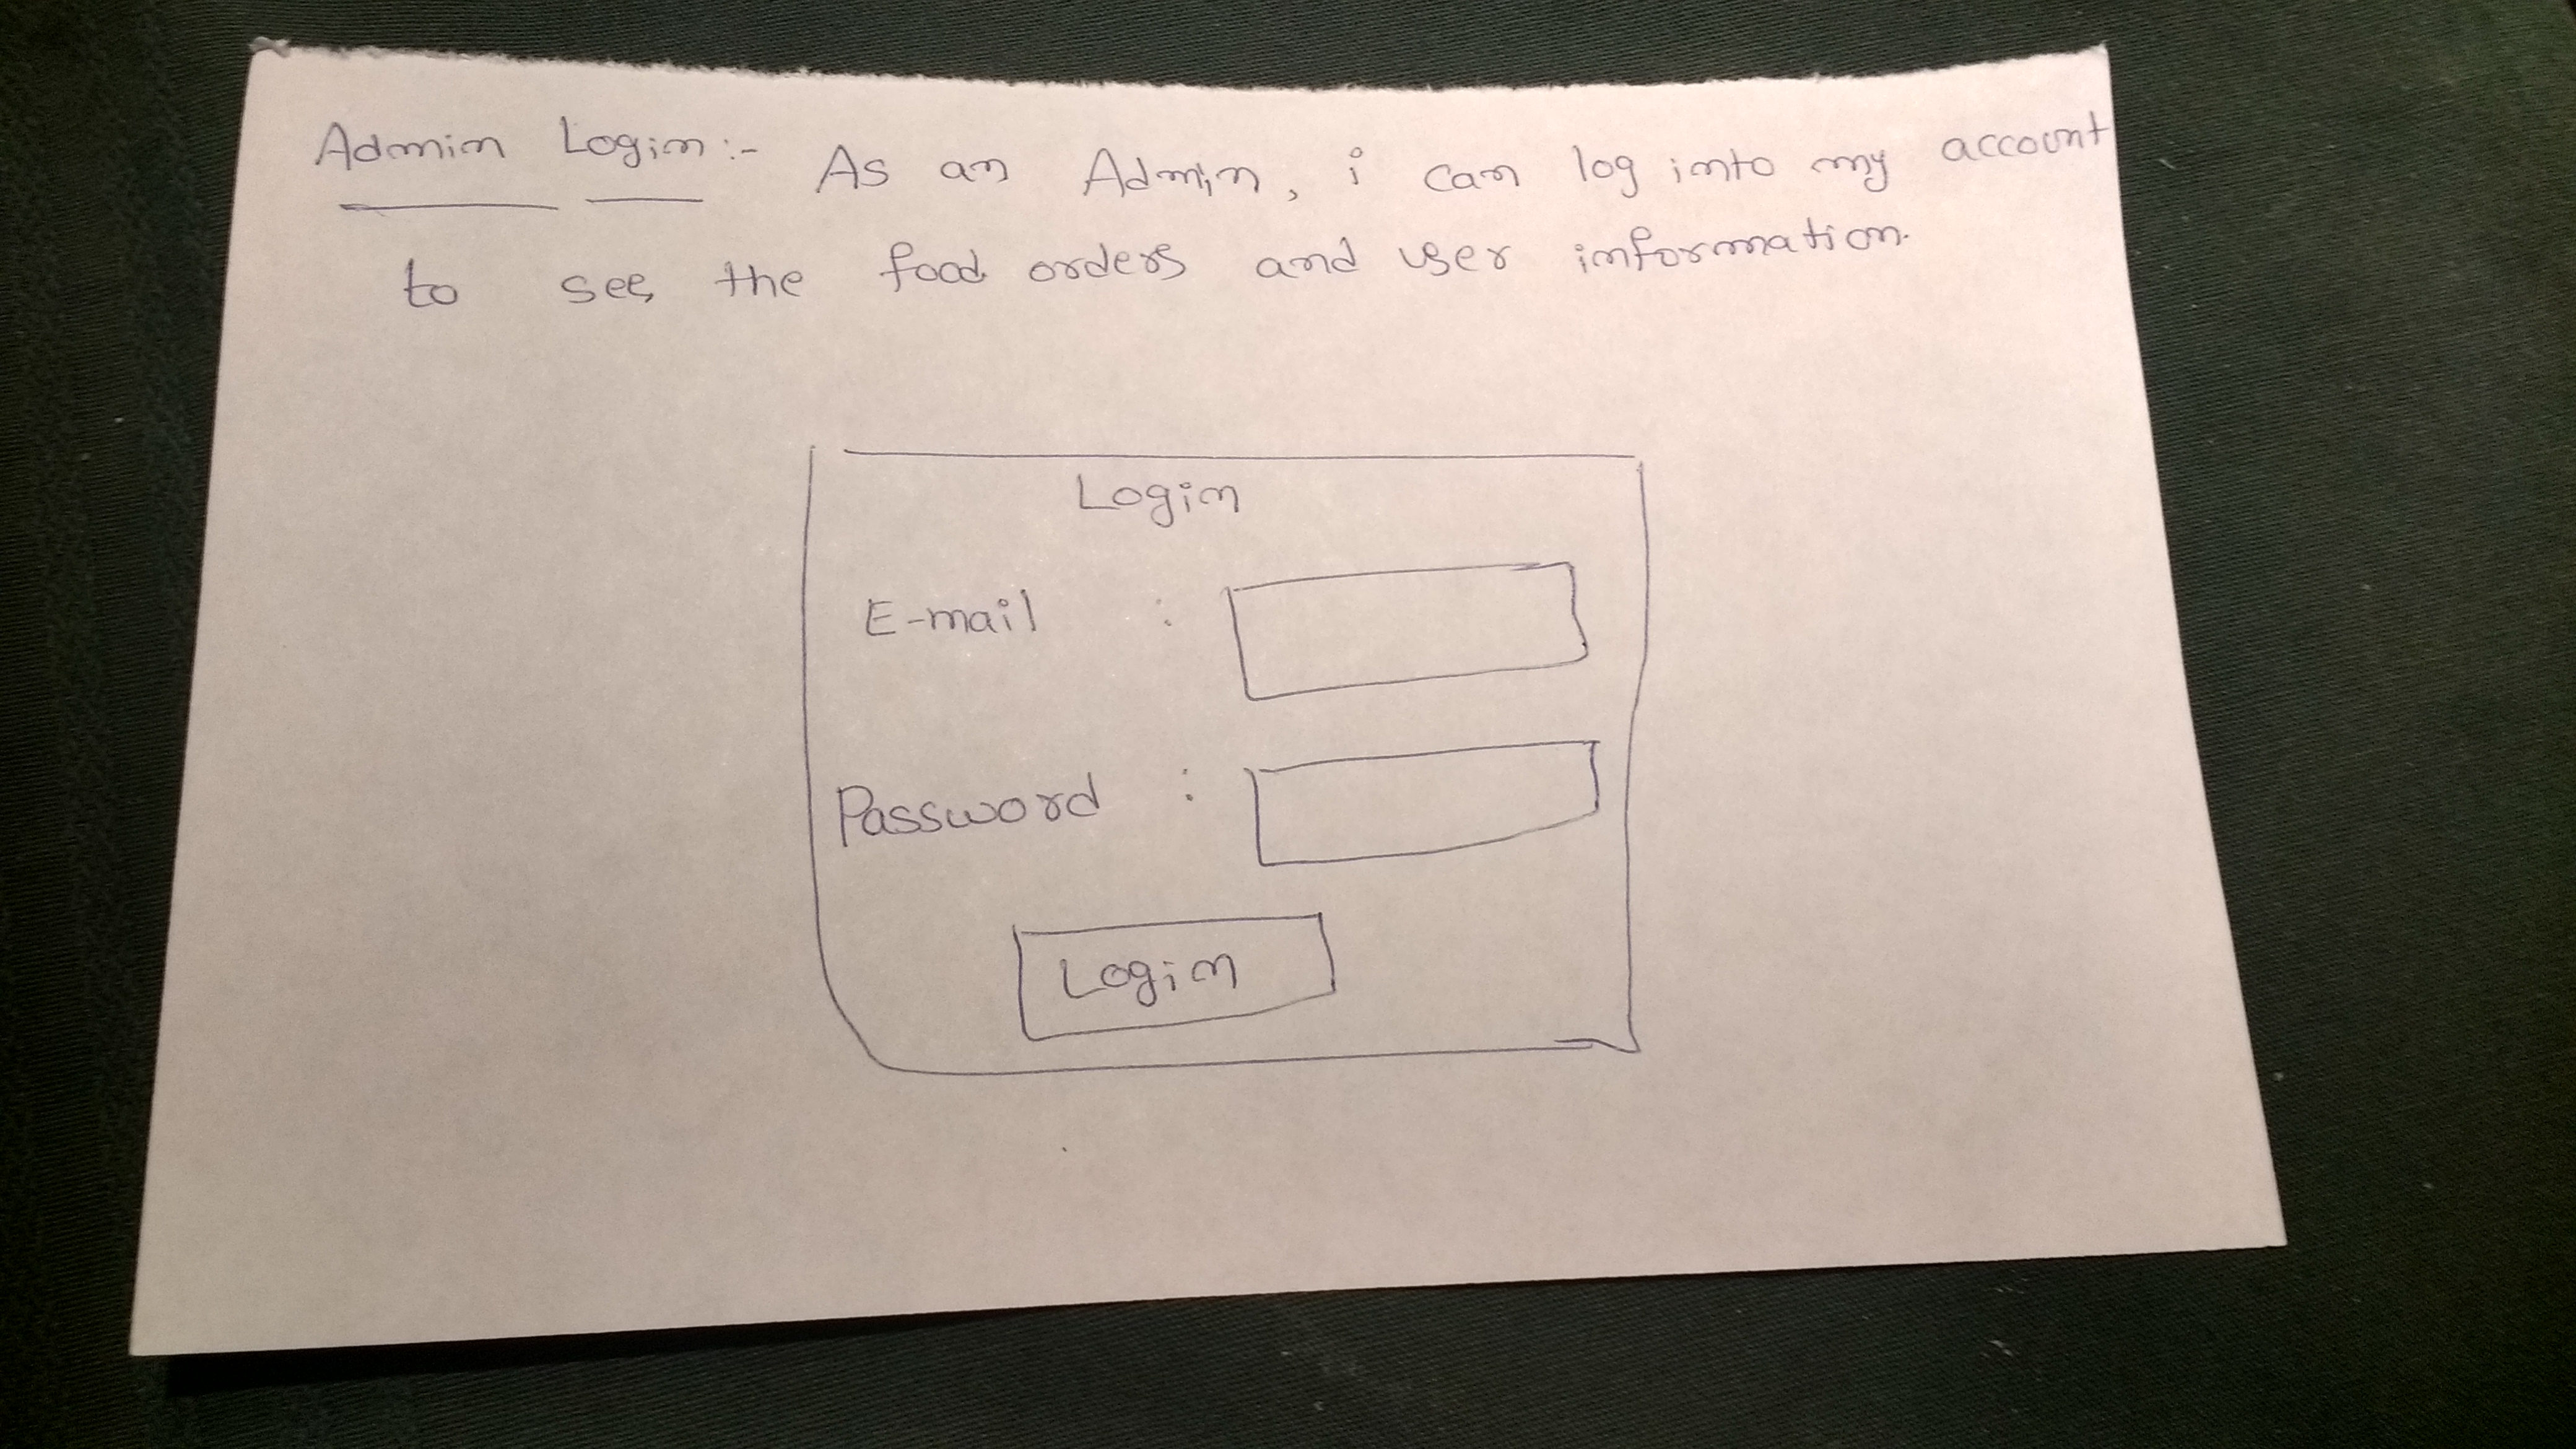 Admin Login :- As an Admin, i can log into my account
to see the food orders and user information.
Login
E-mail :
Password :
Login